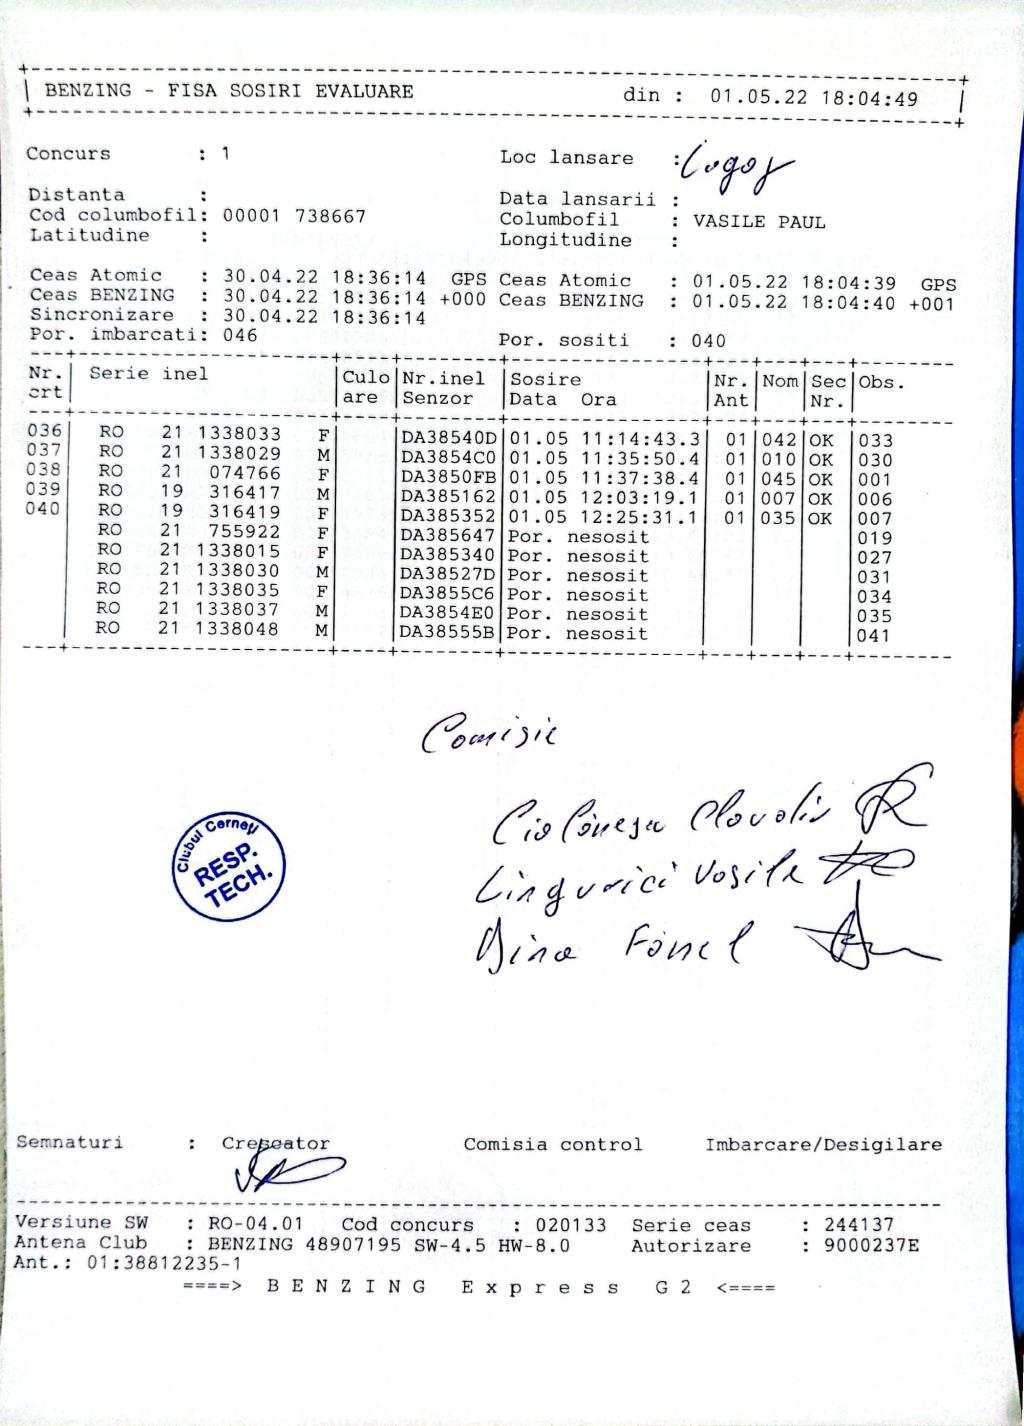 BENZING - FISA SOSIRI EVALUARE din : 01.05.22 18:04:49
Concurs : 1 Loc lansare : Lugoj
Distanta : Data lansarii :
Cod columbofil: 00001 738667 Columbofil : VASILE PAUL
Latitudine : Longitudine :
Ceas Atomic : 30.04.22 18:36:14 GPS Ceas Atomic : 01.05.22 18:04:39 GPS
Ceas BENZING : 30.04.22 18:36:14 +000 Ceas BENZING : 01.05.22 18:04:40 +001
Sincronizare : 30.04.22 18:36:14
Por. imbarcati: 046 Por. sositi : 040
Nr. Serie inel Culo Nr.inel Sosire Nr. Nom Sec Obs.
crt are Senzor Data Ora Ant Nr.
036 RO 21 1338033 F DA38540D 01.05 11:14:43.3 01 042 OK 033
037 RO 21 1338029 M DA3854C0 01.05 11:35:50.4 01 010 OK 030
038 RO 21 074766 F DA3850FB 01.05 11:37:38.4 01 045 OK 001
039 RO 19 316417 M DA385162 01.05 12:03:19.1 01 007 OK 006
040 RO 19 316419 F DA385352 01.05 12:25:31.1 01 035 OK 007
RO 21 755922 F DA385647 Por. nesosit 019
RO 21 1338015 F DA385340 Por. nesosit 027
RO 21 1338030 M DA38527D Por. nesosit 031
RO 21 1338035 F DA3855C6 Por. nesosit 034
RO 21 1338037 M DA3854E0 Por. nesosit 035
RO 21 1338048 M DA38555B Por. nesosit 041
Comisie
Clubul Cerneți
RESP.
TECH.
Lingurici Vasile
Dina Fănel
Semnaturi : Crescator Comisia control Imbarcare/Desigilare
Versiune SW : RO-04.01 Cod concurs : 020133 Serie ceas : 244137
Antena Club : BENZING 48907195 SW-4.5 HW-8.0 Autorizare : 9000237E
Ant.: 01:38812235-1
====> BENZING Express G2 <====